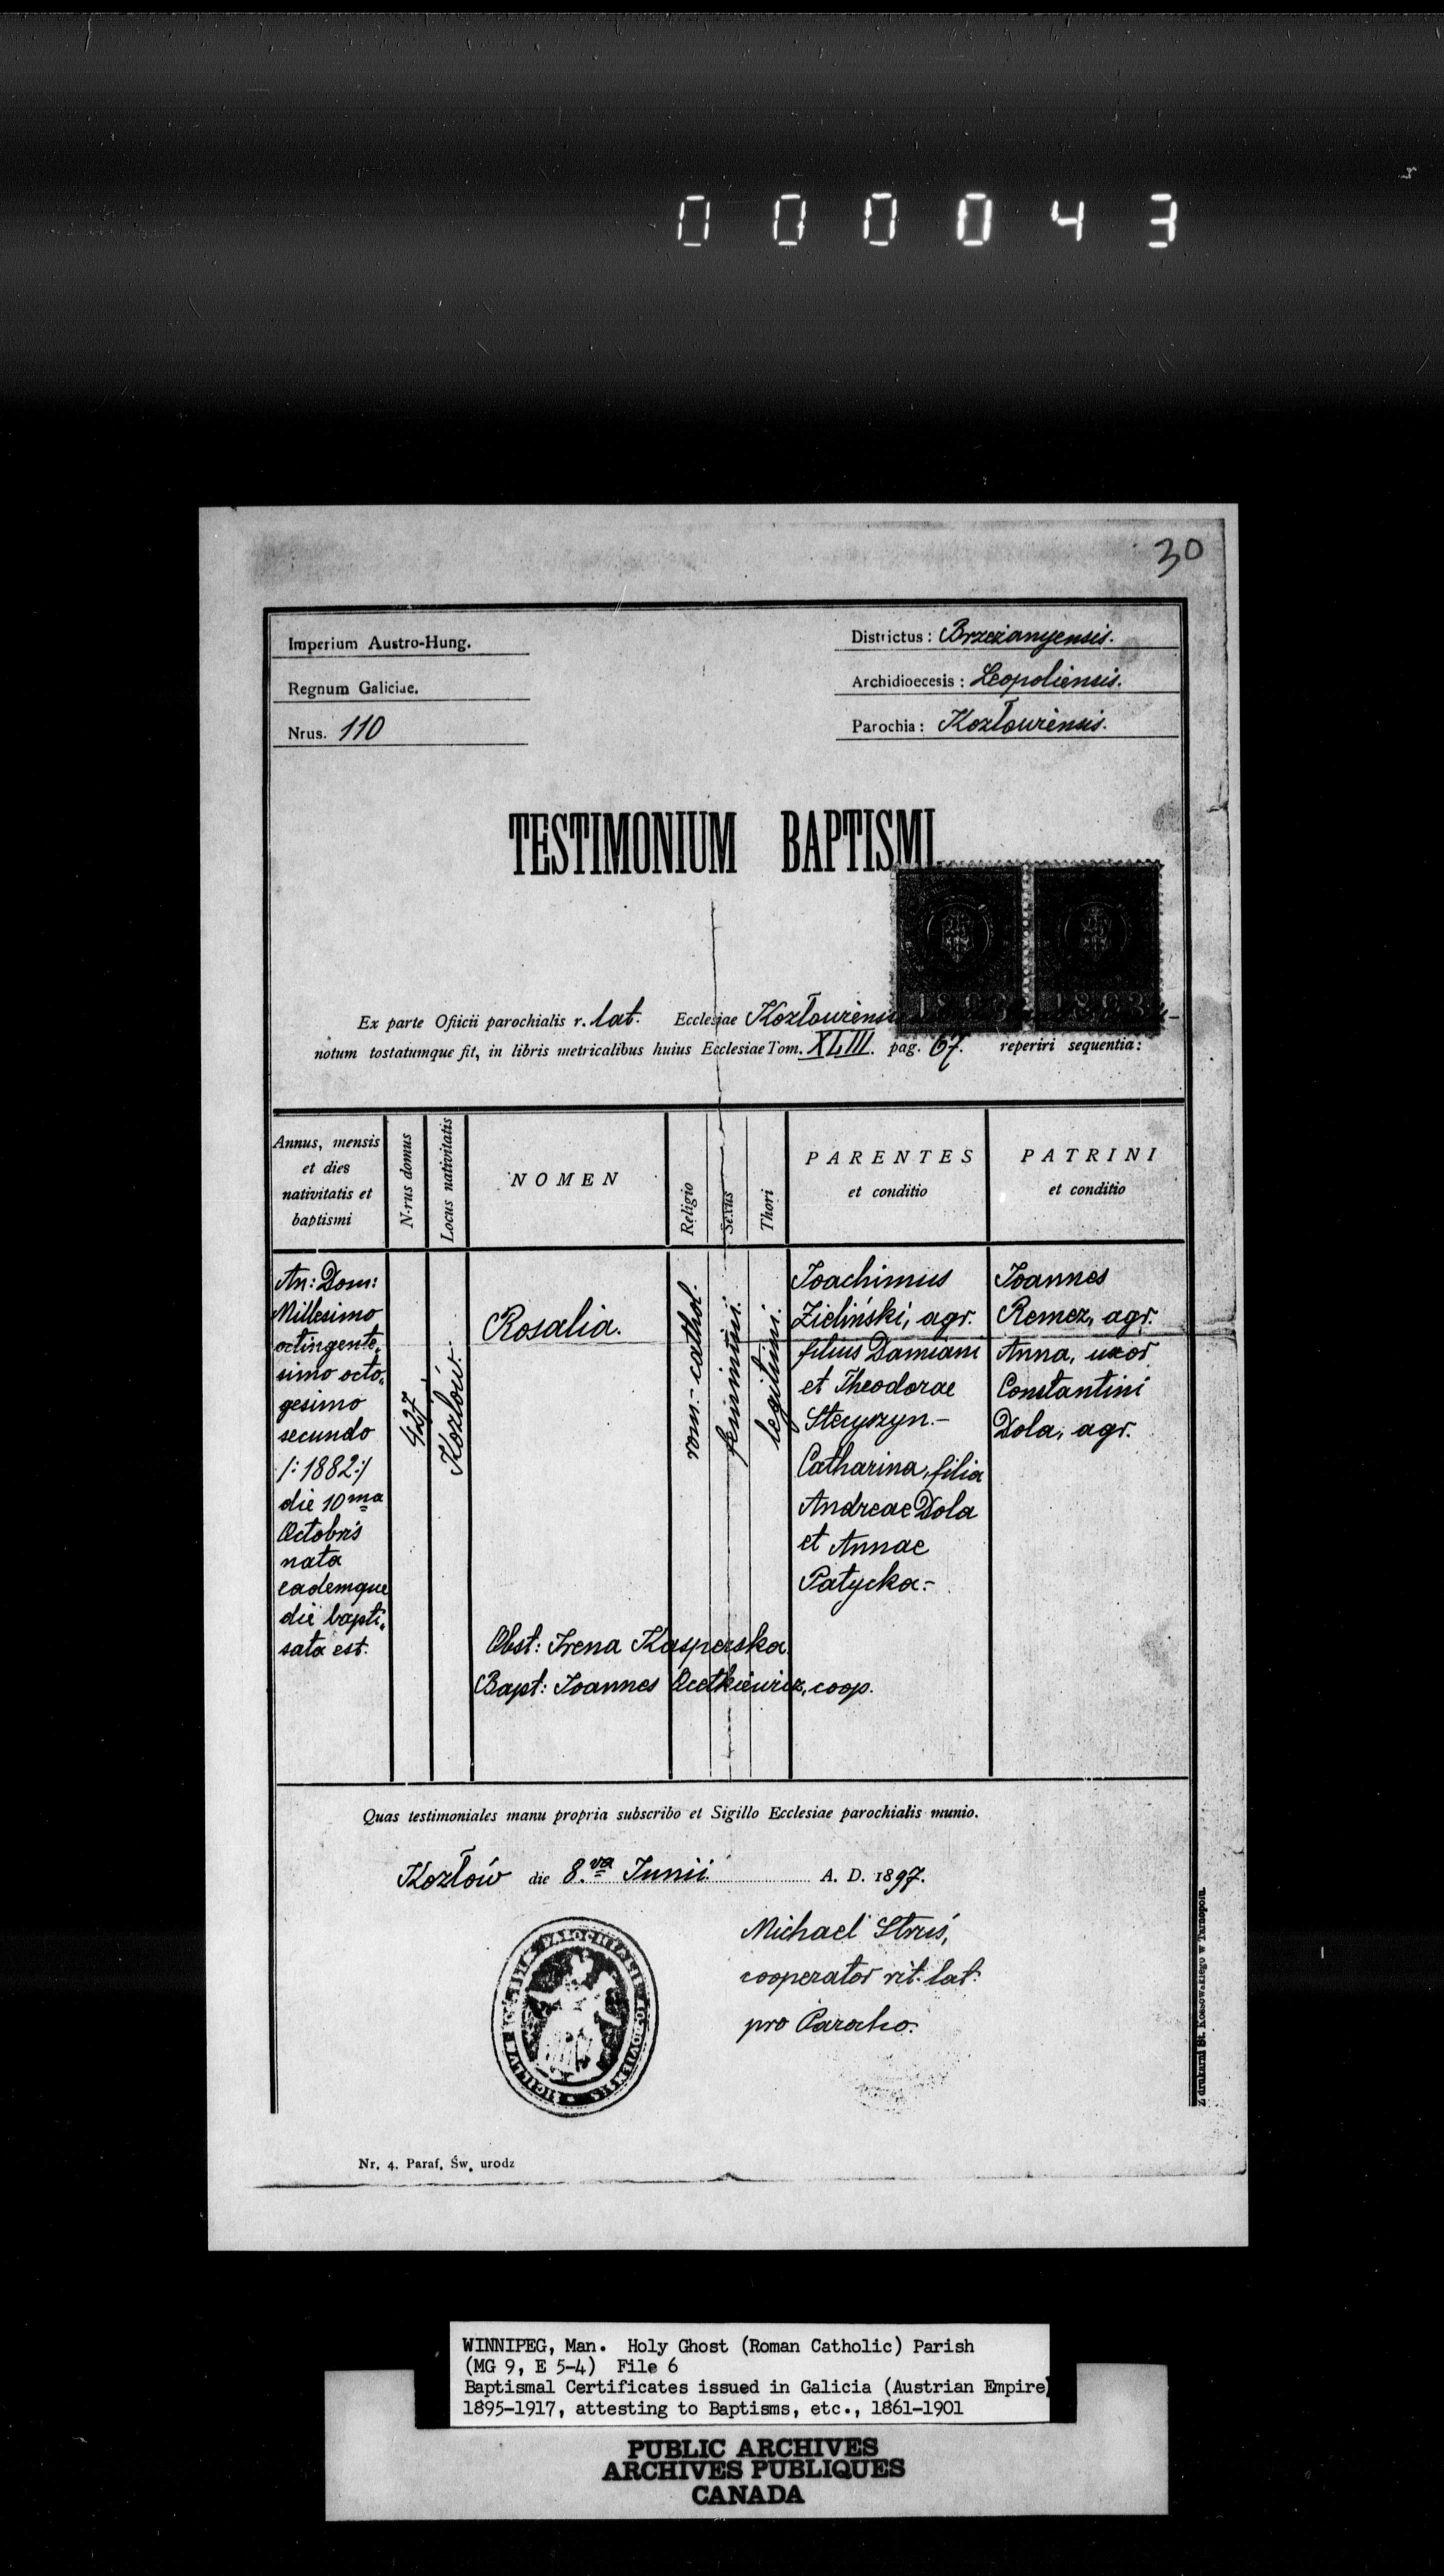 000043
30
Imperium Austro-Hung.
Regnum Galiciae.
Nrus. 110
Districtus: Brzeżanyensis.
Archidioecesis: Leopoliensis.
Parochia: Kozłoviensis.
TESTIMONIUM BAPTISMI.
1893 1893
Ex parte Ofiicii parochialis r. lat. Ecclesiae
notum tostatumque fit, in libris metricalibus huius Ecclesiae Tom. XLIII. pag. 67. reperiri sequentia:
Annus, mensis
et dies
nativitatis et
baptismi
N-rus domus
Locus nativitatis
NOMEN
Religio
Sexus
Thori
PARENTES
et conditio
PATRINI
et conditio
An: Dom:
Millesimo
octingente„
simo octo„
gesimo
secundo
/: 1882 :/
die 10ma
Octobris
nata
eademque
die bapti„
sata est.
427.
Kozłów.
Rosalia.
rom.- cathol.
feminini.
legitimi.
Joachimus
Zieliński, agr.
filius Damiani
et Theodorae
Steyszyn.-
Catharina, filia
Andreae Dola
et Annae
Patycka.-
Joannes
Remez, agr.
Anna, uxor
Constantini
Dola, agr.
Obst: Irena Kasperska.
Bapt: Joannes Ocetkiewicz, coop.
Quas testimoniales manu propria subscribo et Sigillo Ecclesiae parochialis munio.
Kozłów die 8.va Junii A. D. 1897.
Michael Struś,
cooperator rit. lat.
pro Parocho.
Nr. 4. Paraf. Św. urodz
Z drukarni St. Kossowskiego w Tarnopolu.
WINNIPEG, Man. Holy Ghost (Roman Catholic) Parish
(MG 9, E 5-4) File 6
Baptismal Certificates issued in Galicia (Austrian Empire)
1895-1917, attesting to Baptisms, etc., 1861-1901
PUBLIC ARCHIVES
ARCHIVES PUBLIQUES
CANADA